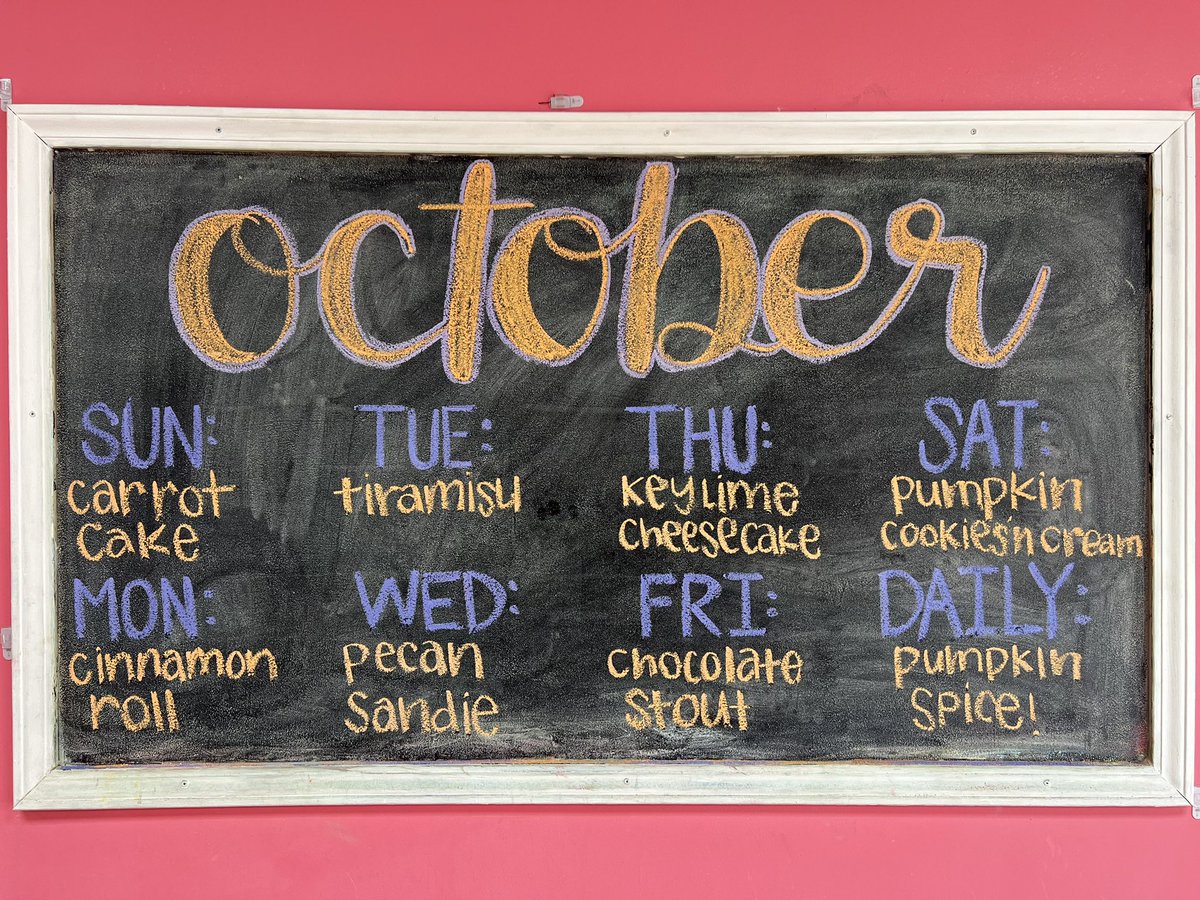 october
SUN:
carrot
cake
MON:
cinnamon
roll
TUE:
tiramisu
WED:
pecan
sandie
THU:
key lime
cheesecake
FRI:
chocolate
stout
SAT:
pumpkin
cookies'n cream
DAILY:
pumpkin
spice!